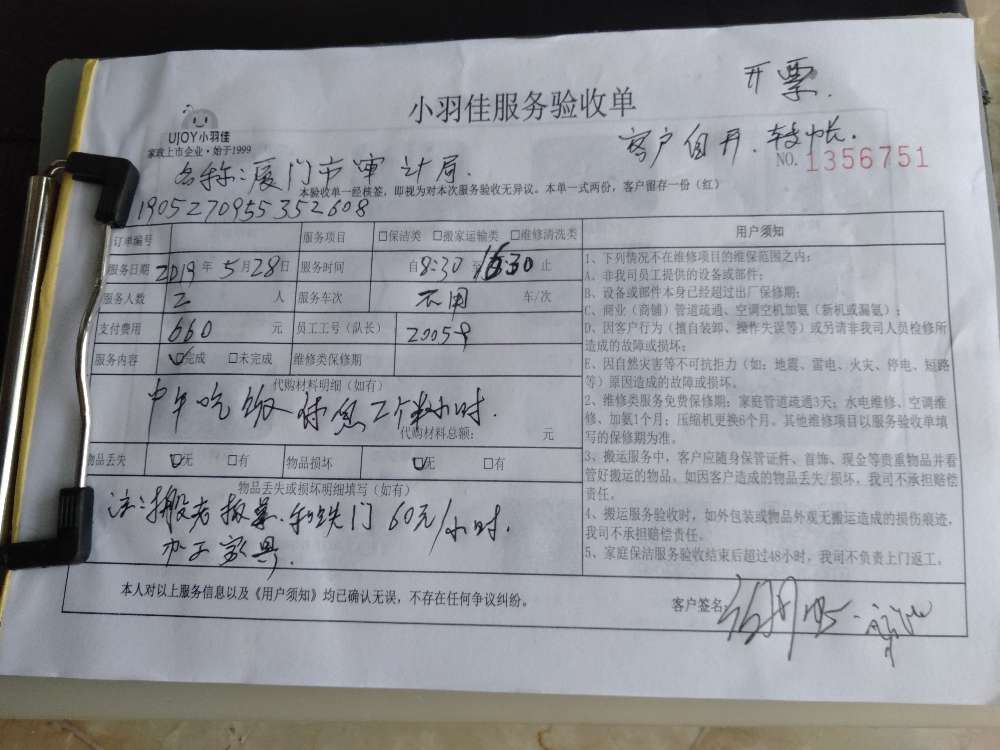 开票.
小羽佳服务验收单
UJOY小羽佳
家政上市企业·始于1999
客户自开.转帐.
NO. 1356751
名称:厦门市审计局.
本验收单一经核签，即视为对本次服务验收无异议。本单一式两份，客户留存一份（红）
1905270955352608
订单编号 服务项目 □保洁类 □搬家运输类 □维修清洗类
服务日期 2019年5月28日 服务时间 自8:30至16:30止
服务人数 二 人 服务车次 不用 车/次
支付费用 660 元 员工工号（队长） 20059
服务内容 ☑完成 □未完成 维修类保修期
代购材料明细（如有）
中午吃饭休息二个半小时.
代购材料总额: 元
物品丢失 ☑无 □有 物品损坏 ☑无 □有
物品丢失或损坏明细填写（如有）
注:搬老 和铁门 60元/小时.
办公家具.
用户须知
1、下列情况不在维修项目的维保范围之内:
A、非我司员工提供的设备或部件;
B、设备或部件本身已经超过出厂保修期;
C、商业（商铺）管道疏通、空调空机加氨（新机或漏氨）;
D、因客户行为（擅自装卸、操作失误等）或另请非我司人员检修所
造成的故障或损坏;
E、因自然灾害等不可抗拒力（如: 地震、雷电、火灾、停电、短路
等）原因造成的故障或损坏。
2、维修类服务免费保修期: 家庭管道疏通3天; 水电维修、空调维
修、加氨1个月; 压缩机更换6个月。其他维修项目以服务验收单填
写的保修期为准。
3、搬运服务中，客户应随身保管证件、首饰、现金等贵重物品并看
管好搬运的物品。如因客户造成的物品丢失/损坏，我司不承担赔偿
责任。
4、搬运服务验收时，如外包装或物品外观无搬运造成的损伤痕迹，
我司不承担赔偿责任。
5、家庭保洁服务验收结束后超过48小时，我司不负责上门返工。
本人对以上服务信息以及《用户须知》均已确认无误，不存在任何争议纠纷。
客户签名: